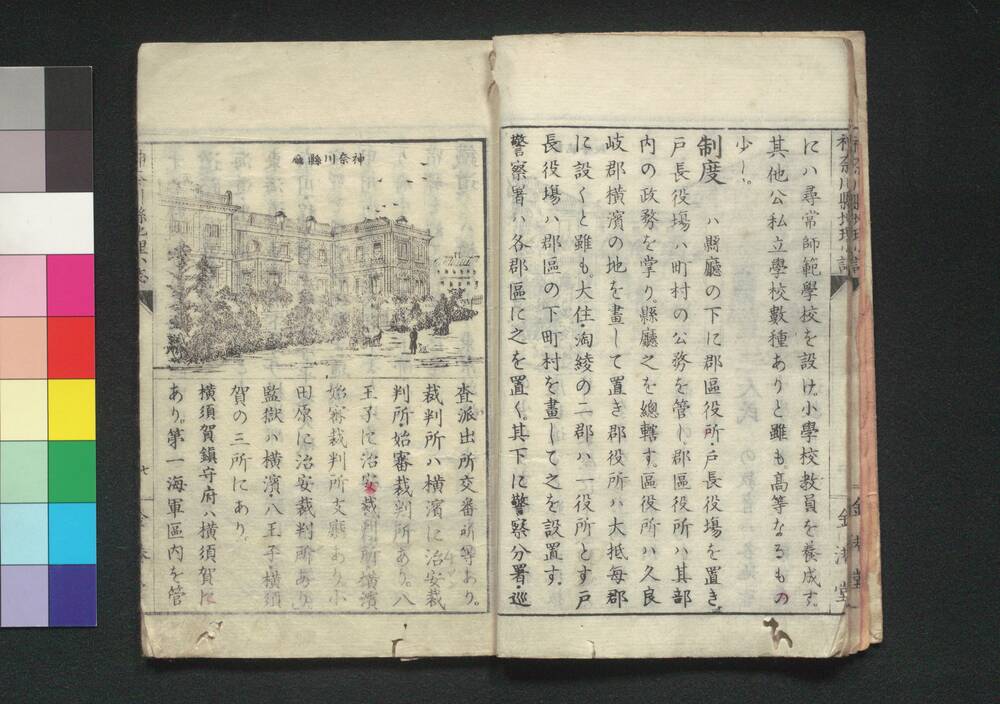 にハ尋常師範學校を設け。小學校教員を養成す。
其他公私立學校數種ありと雖も。高等なるもの
少し。
制度 ハ縣廳の下に郡區役所・戸長役場を置き。
戸長役場ハ町村の公務を管し郡區役所ハ其部
内の政務を掌り。縣廳之を總轄す。區役所ハ久良
岐郡横濱の地を畫して置き郡役所ハ大抵每郡
に設くと雖も。大住・淘綾の二郡ハ一役所とす戸
長役場ハ郡區の下町村を畫して之を設置す。
警察署ハ各郡區に之を置く。其下に警察分署・巡
神奈川縣廳
査派出所交番所等あり。
裁判所ハ横濱に治安裁
判所・始審裁判所あり。八
王子に治安裁判所・横濱
始審裁判所支廳あり小
田原に治安裁判所あり
監獄ハ横濱・八王子・横須
賀の三所にあり。
横須賀鎮守府ハ横須賀に
あり。第一海軍區内を管
金港堂